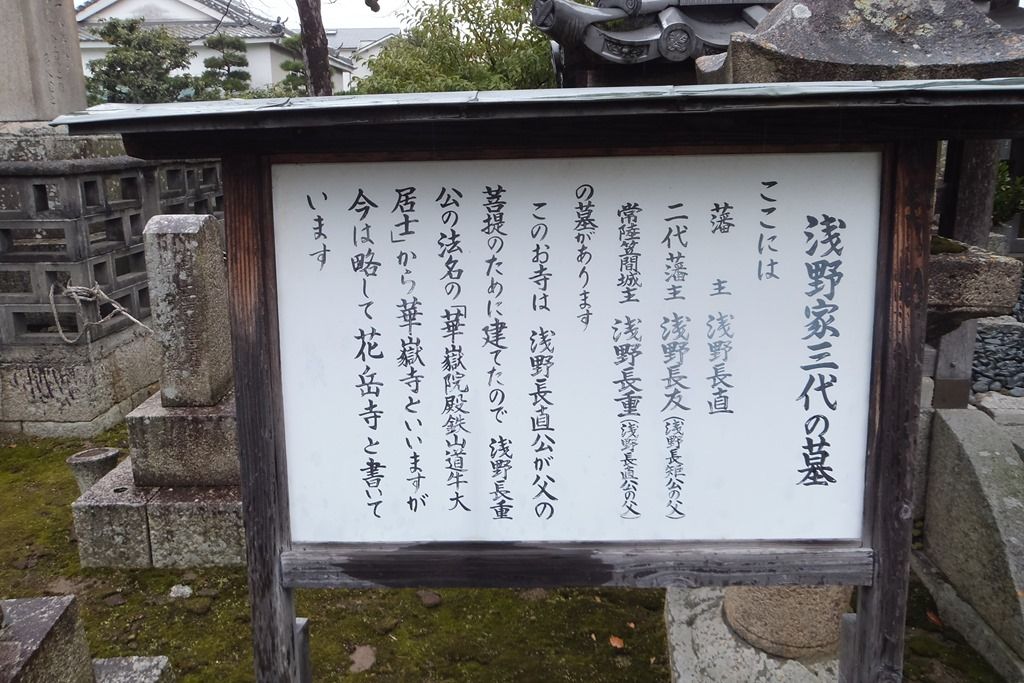 浅野家三代の墓
ここには
藩　主　浅野長直
二代藩主　浅野長友（浅野長矩公の父）
常陸笠間城主　浅野長重（浅野長直公の父）
の墓があります
このお寺は　浅野長直公が父の
菩提のために建てたので　浅野長重
公の法名の「華嶽院殿鉄山道牛大
居士」から華嶽寺といいますが
今は略して花岳寺と書いて
います